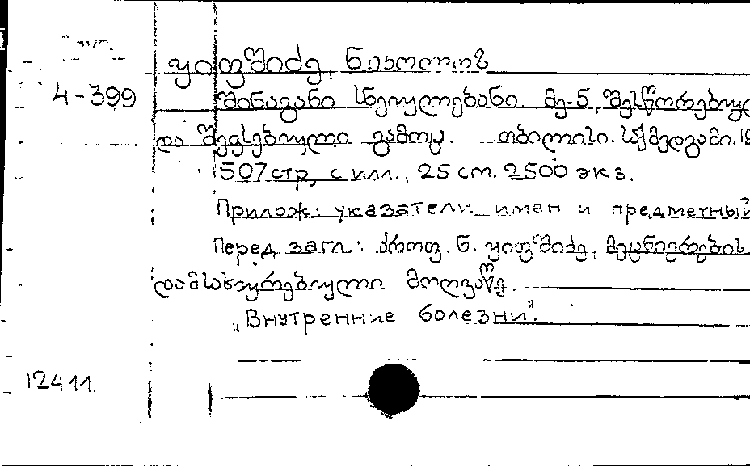 ყიფშიძე ნიკოლოზ
4-399
შინაგანი სნეულებანი. მე-5, შესწორებულ
და შევსებული გამოც. თბილისი. საქმედგამი. 19
507 стр, с илл., 25 см. 2500 экз.
Прилож: указатели имен и предметный
Перед загл: პროფ. ნ. ყიფშიძე, მეცნიერების
დამსახურებული მოღვაწე.
„Внутренние болезни".
12411